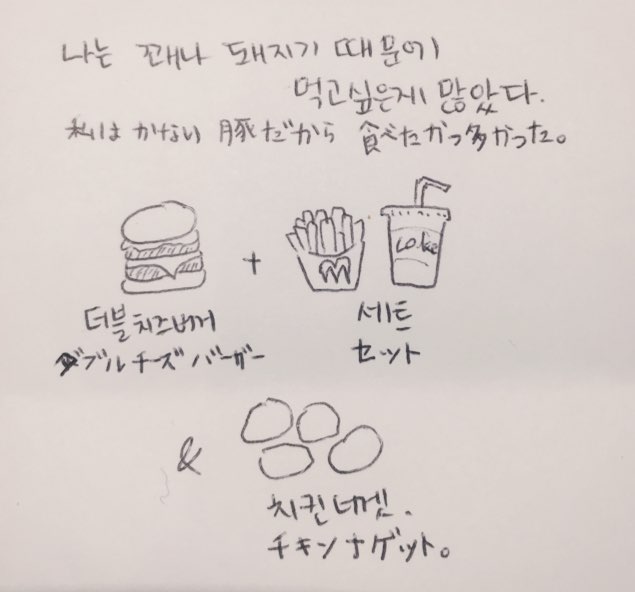 나는 꽤나 돼지기 때문에
먹고싶은게 많았다.
私は かない 豚だから 食べたかっ多かった。
+
coke
더블치즈버거
ダブルチーズバーガー
세트
セット
&
치킨너겟.
チキンナゲット。